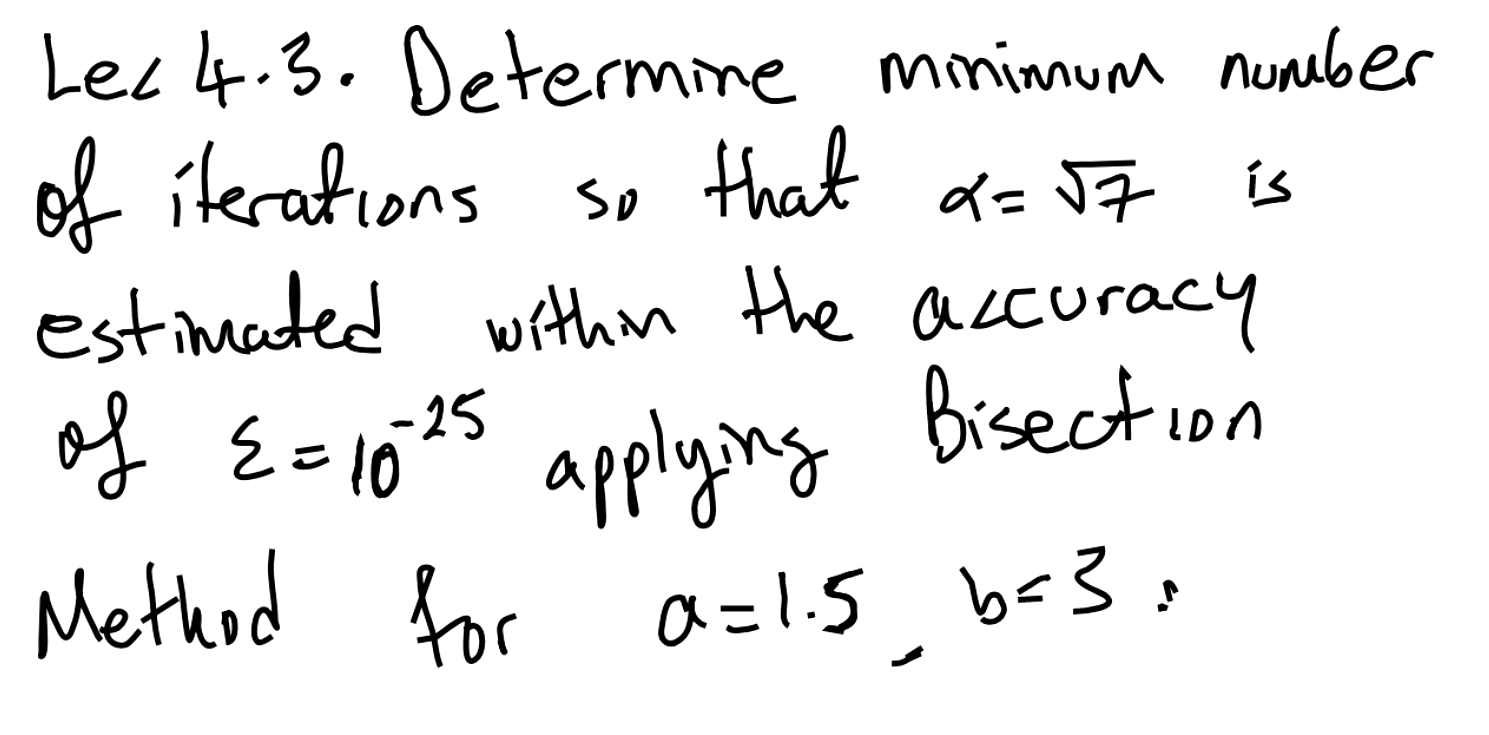 Lec 4.3. Determine minimum number
of iterations so that α = √7 is
estimated within the accuracy
of ε = 10⁻²⁵ applying Bisection
Method for a = 1.5, b = 3.